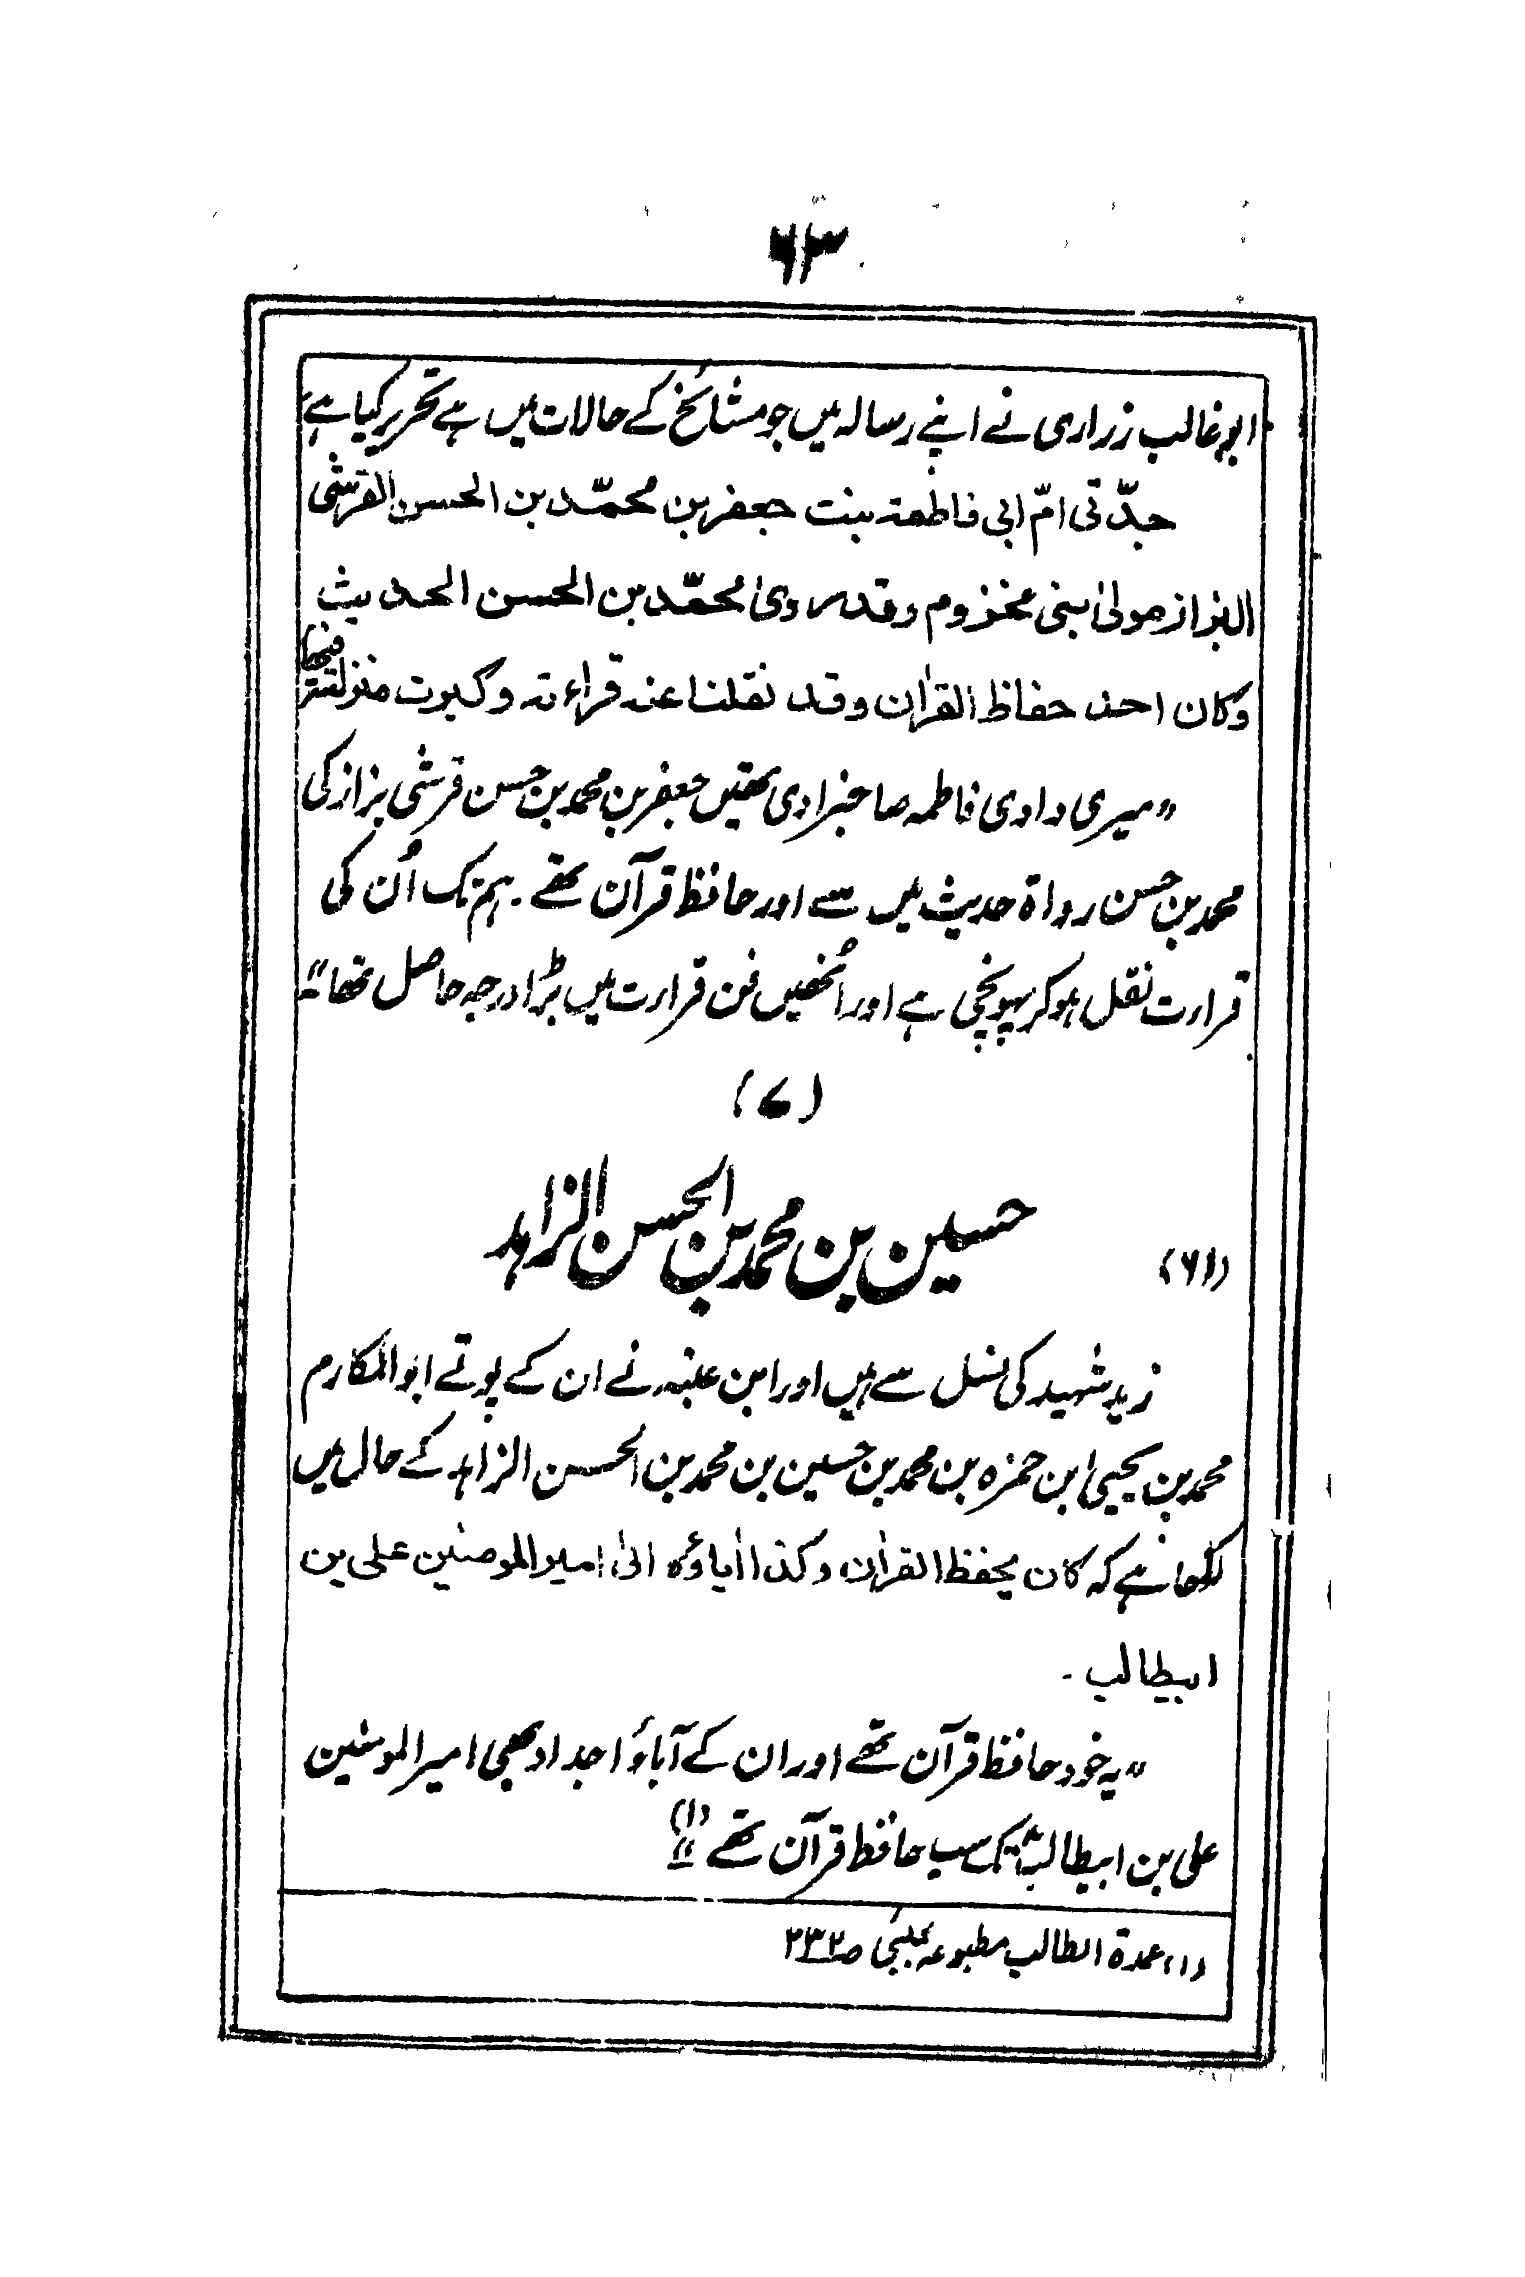 ۶۳
ابو غالب زراری نے اپنے رسالہ میں جو مشائخ کے حالات میں ہے تحریر کیا ہے
جدّتی امّ ابی فاطمة بنت جعفر بن محمّد بن الحسن القرشی
البزاز مولیٰ بنی مخزوم وقد روی محمّد بن الحسن الحدیث
وکان احد حفاظ القراٰن وقد نقلنا عنه قراءته وکبرت منزلته فیها
”میری دادی فاطمہ صاحبزادی تھیں جعفر بن محمد بن حسن قرشی بزاز کی
محمد بن حسن رواة حدیث میں سے اور حافظ قرآن تھے۔ ہم تک اُن کی
قرارت نقل ہو کر پہونچی ہے اور اُنھیں فن قرارت میں بڑا درجہ حاصل تھا“۔
(۷)
(۶۱) حسین بن محمد بن الحسن الزاہد
زید شہید کی نسل سے ہیں اور ابن عنبہ نے ان کے پوتے ابو المکارم
محمد بن یحییٰ ابن حمزہ بن محمد بن حسین بن محمد بن الحسن الزاہد کے حال میں
لکھا ہے کہ کان یحفظ القراٰن وکذا اٰباؤه الیٰ امیر المومنین علی بن
ابیطالب ۔
”یہ خود حافظ قرآن تھے اور ان کے آباؤ اجداد بھی امیر المومنین
علی بن ابیطالبؑ تک سب حافظ قرآن تھے“ (۱)
(۱) عمدة الطالب مطبوعہ بمبئی ص۲۳۲